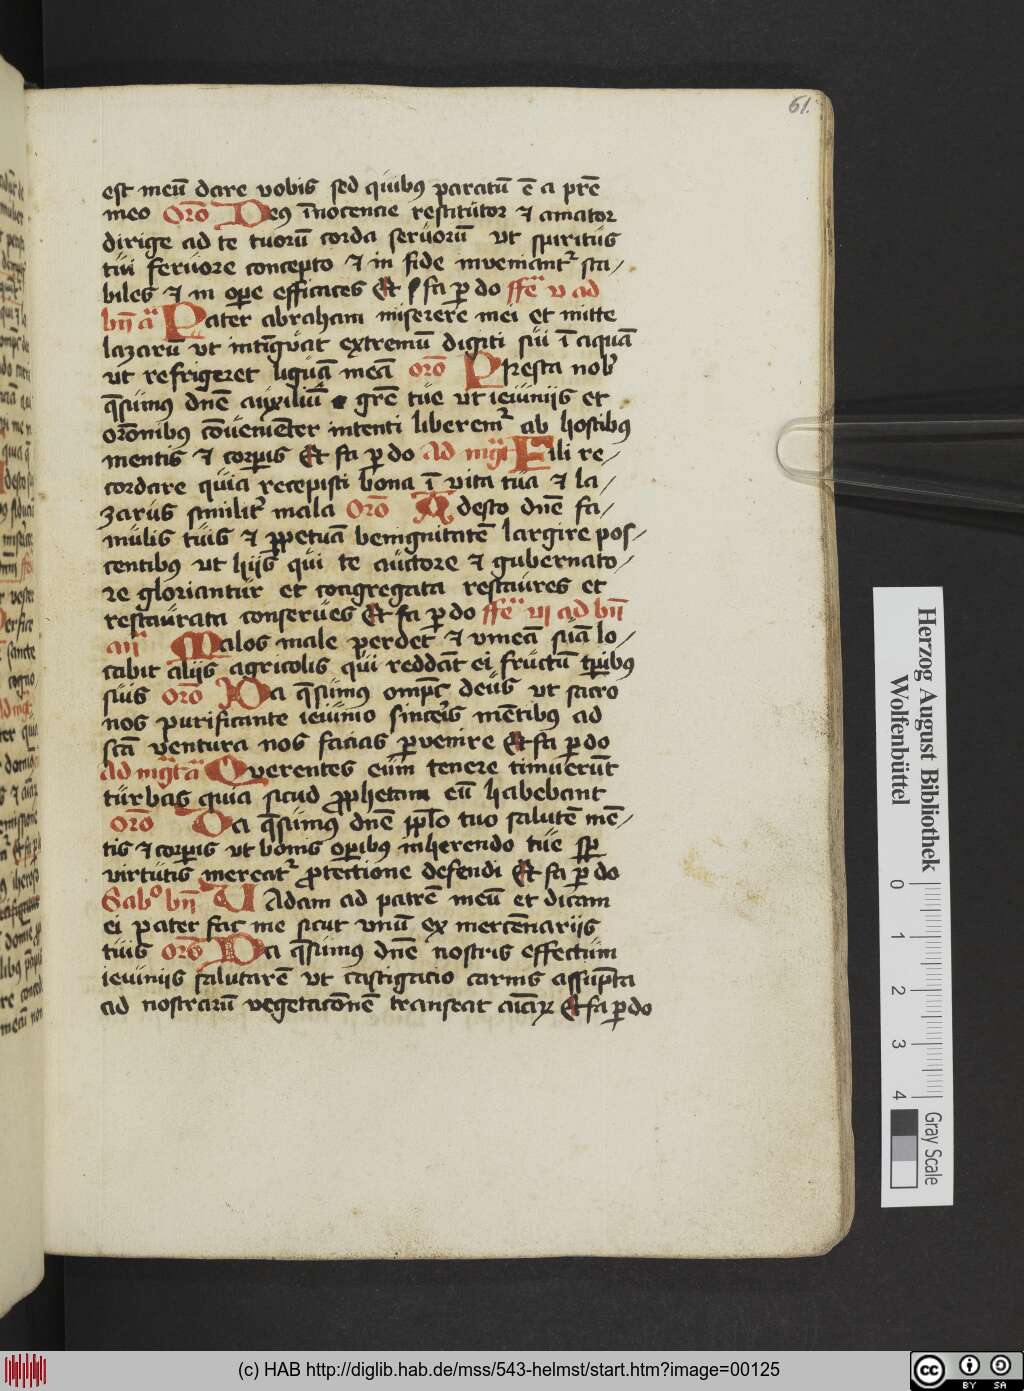 61.
est meū dare vobis sed quibus paratū ē a prē
meo orō Deus īnocencie restitutor et amator
dirige ad te tuorū corda seruorū ut spiritus
tui feruore concepto et in fide inueniantr sta/
biles et in ope efficaces Et fa p do ffea v ad
bn̄ a Pater abraham miserere mei et mitte
lazarū ut intīguat extremū digiti sui ī aquā
ut refrigeret liguā meā orō Presta nob
qsumus dnē auxiliū grē tue ut ieiuniis et
orōnibus cōuenienter intenti liberemr ab hostibus
mentis et corpis Et fa p do ad mgt Fili re/
cordare quia recepisti bona ī vita tua et la/
zarus similitr mala Orō Adesto dnē fa/
mulis tuis et ppetuā benignitatē largire pos/
centibus ut hiis qui te auctore et gubernato/
re gloriantur et congregata restaures et
restaurata conserues Et fa p do ffea vi ad bn̄
an̄ Malos male perdet et vineā suā lo/
cabit aliis agricolis qui reddāt ei fructū tpibus
suis orō Da qsumus ompc deus ut sacro
nos purificante ieiunio sinceris mētibus ad
scā ventura nos facias pvenire Et fa p do
ad mgt a Querentes eum tenere timuerūt
turbas quia sicud prophetam eū habebant
orō Da qsumus dnē pplo tuo salutē mē/
tis et corpis ut bonis opibus inherendo tue sp
virtutis mereatr ptectione defendi Et fa p do
Sabo bn̄ Vadam ad patrē meū et dicam
ei pater fac me sicut vnū ex mercēnariis
tuis orō Da qsumus dnē nostris effectum
ieiuniis salutarē ut castigacio carnis assūpta
ad nostrarū vegetacōnē transeat aīaꝝ Et fa p do
Herzog August Bibliothek
Wolfenbüttel
0 1 2 3 4
Gray Scale
(c) HAB http://diglib.hab.de/mss/543-helmst/start.htm?image=00125
cc BY SA